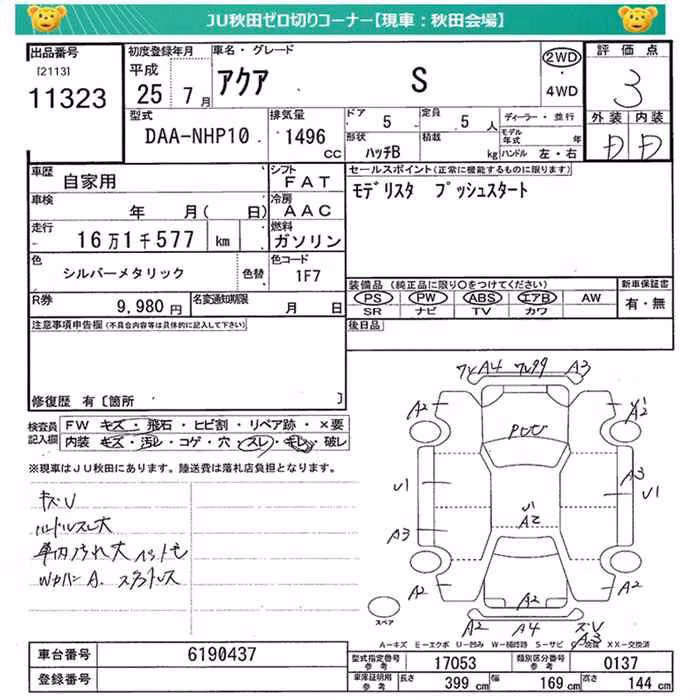 JU秋田ゼロ切りコーナー【現車：秋田会場】
出品番号 初度登録年月 車名・グレード 評価点
[2113] 平成 アクア S 2WD・4WD 3
11323 25 7月 外装 内装
型式 排気量 ドア 5 定員 5人 ディーラー・並行
DAA-NHP10 1496 CC 形状 ハッチB 積載 kg モデル年式 年
ハンドル 左・右 D D
車歴 自家用 シフト FAT セールスポイント(正常に機能するものに限ります)
車検 年 月( 日) 冷房 AAC モデリスタ プッシュスタート
走行 16万1千577 km 燃料 ガソリン
色 シルバーメタリック 色替 色コード 1F7
装備品(純正品に限り○をつけてください) 新車保証書
R券 9,980円 名変通知期限 月 日 PS PW ABS エアB AW 有・無
SR ナビ TV カワ
注意事項申告欄(不具合内容等は具体的に記入して下さい) 後日品
修復歴 有〔箇所 〕
検査員記入欄 FW キズ・飛石・ヒビ割・リペア跡・×要
内装 キズ・汚レ・コゲ・穴・スレ・キレ・破レ
※現車はJU秋田にあります。陸送費は落札店負担となります。
キズU
ハンドルスレ大
車内汚れ大 ヘットモ
A4 A3
A2 A2
U1 A3 U1
U1
A3 A2
A2 A2 A2
A2 A4 A3
スペア
A-キズ E-エクボ U-凹み W-補修跡 S-サビ C-腐蝕 XX-交換済
車台番号 6190437 型式指定番号 参考 17053 類別区分番号 参考 0137
登録番号 車庫証明用 参考 長さ 399 cm 幅 169 cm 高さ 144 cm